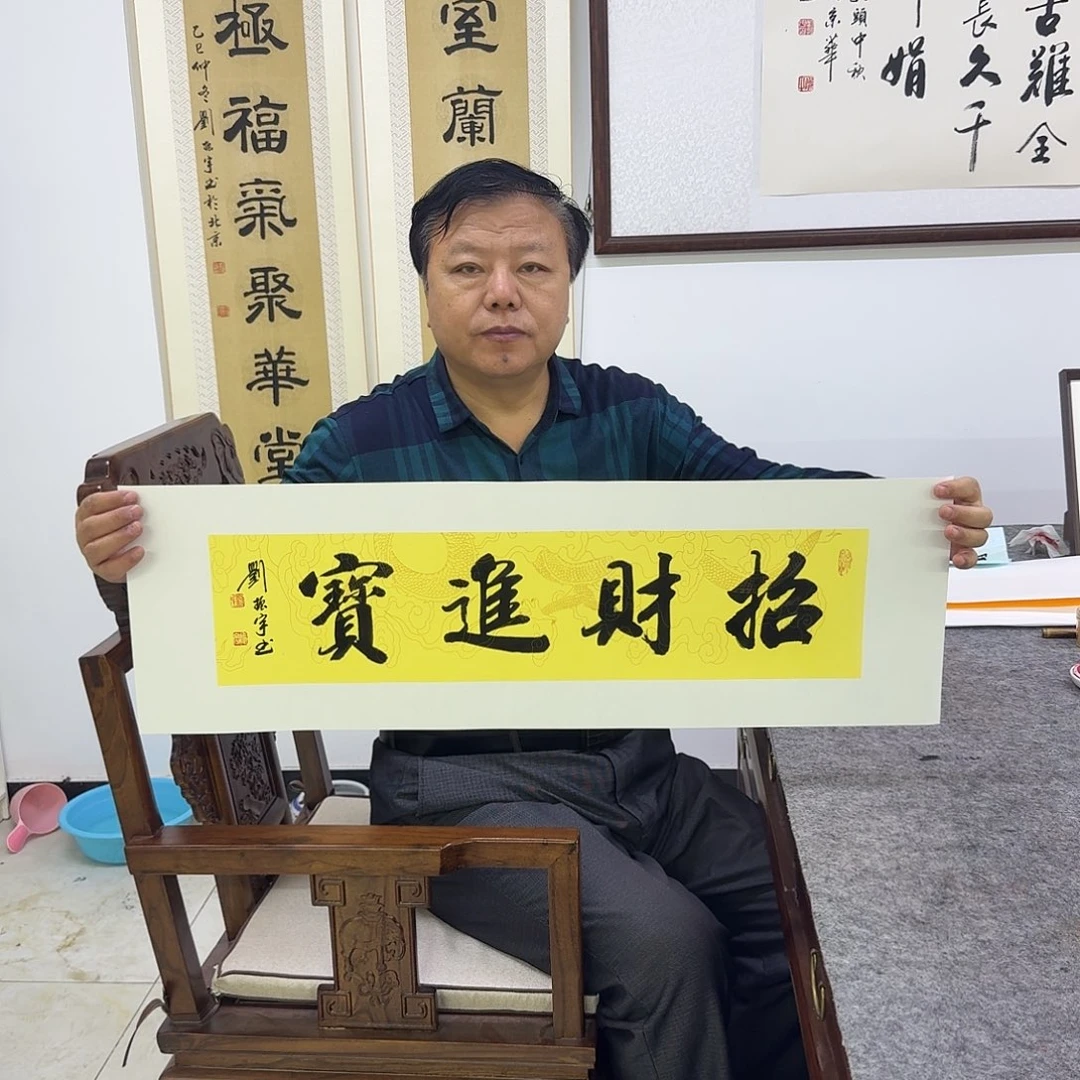 古難全
長久千
娟
頭中秋
京華
室蘭
極福氣聚華堂
乙巳仲冬劉振宇书於北京
招財進寶
劉振宇书